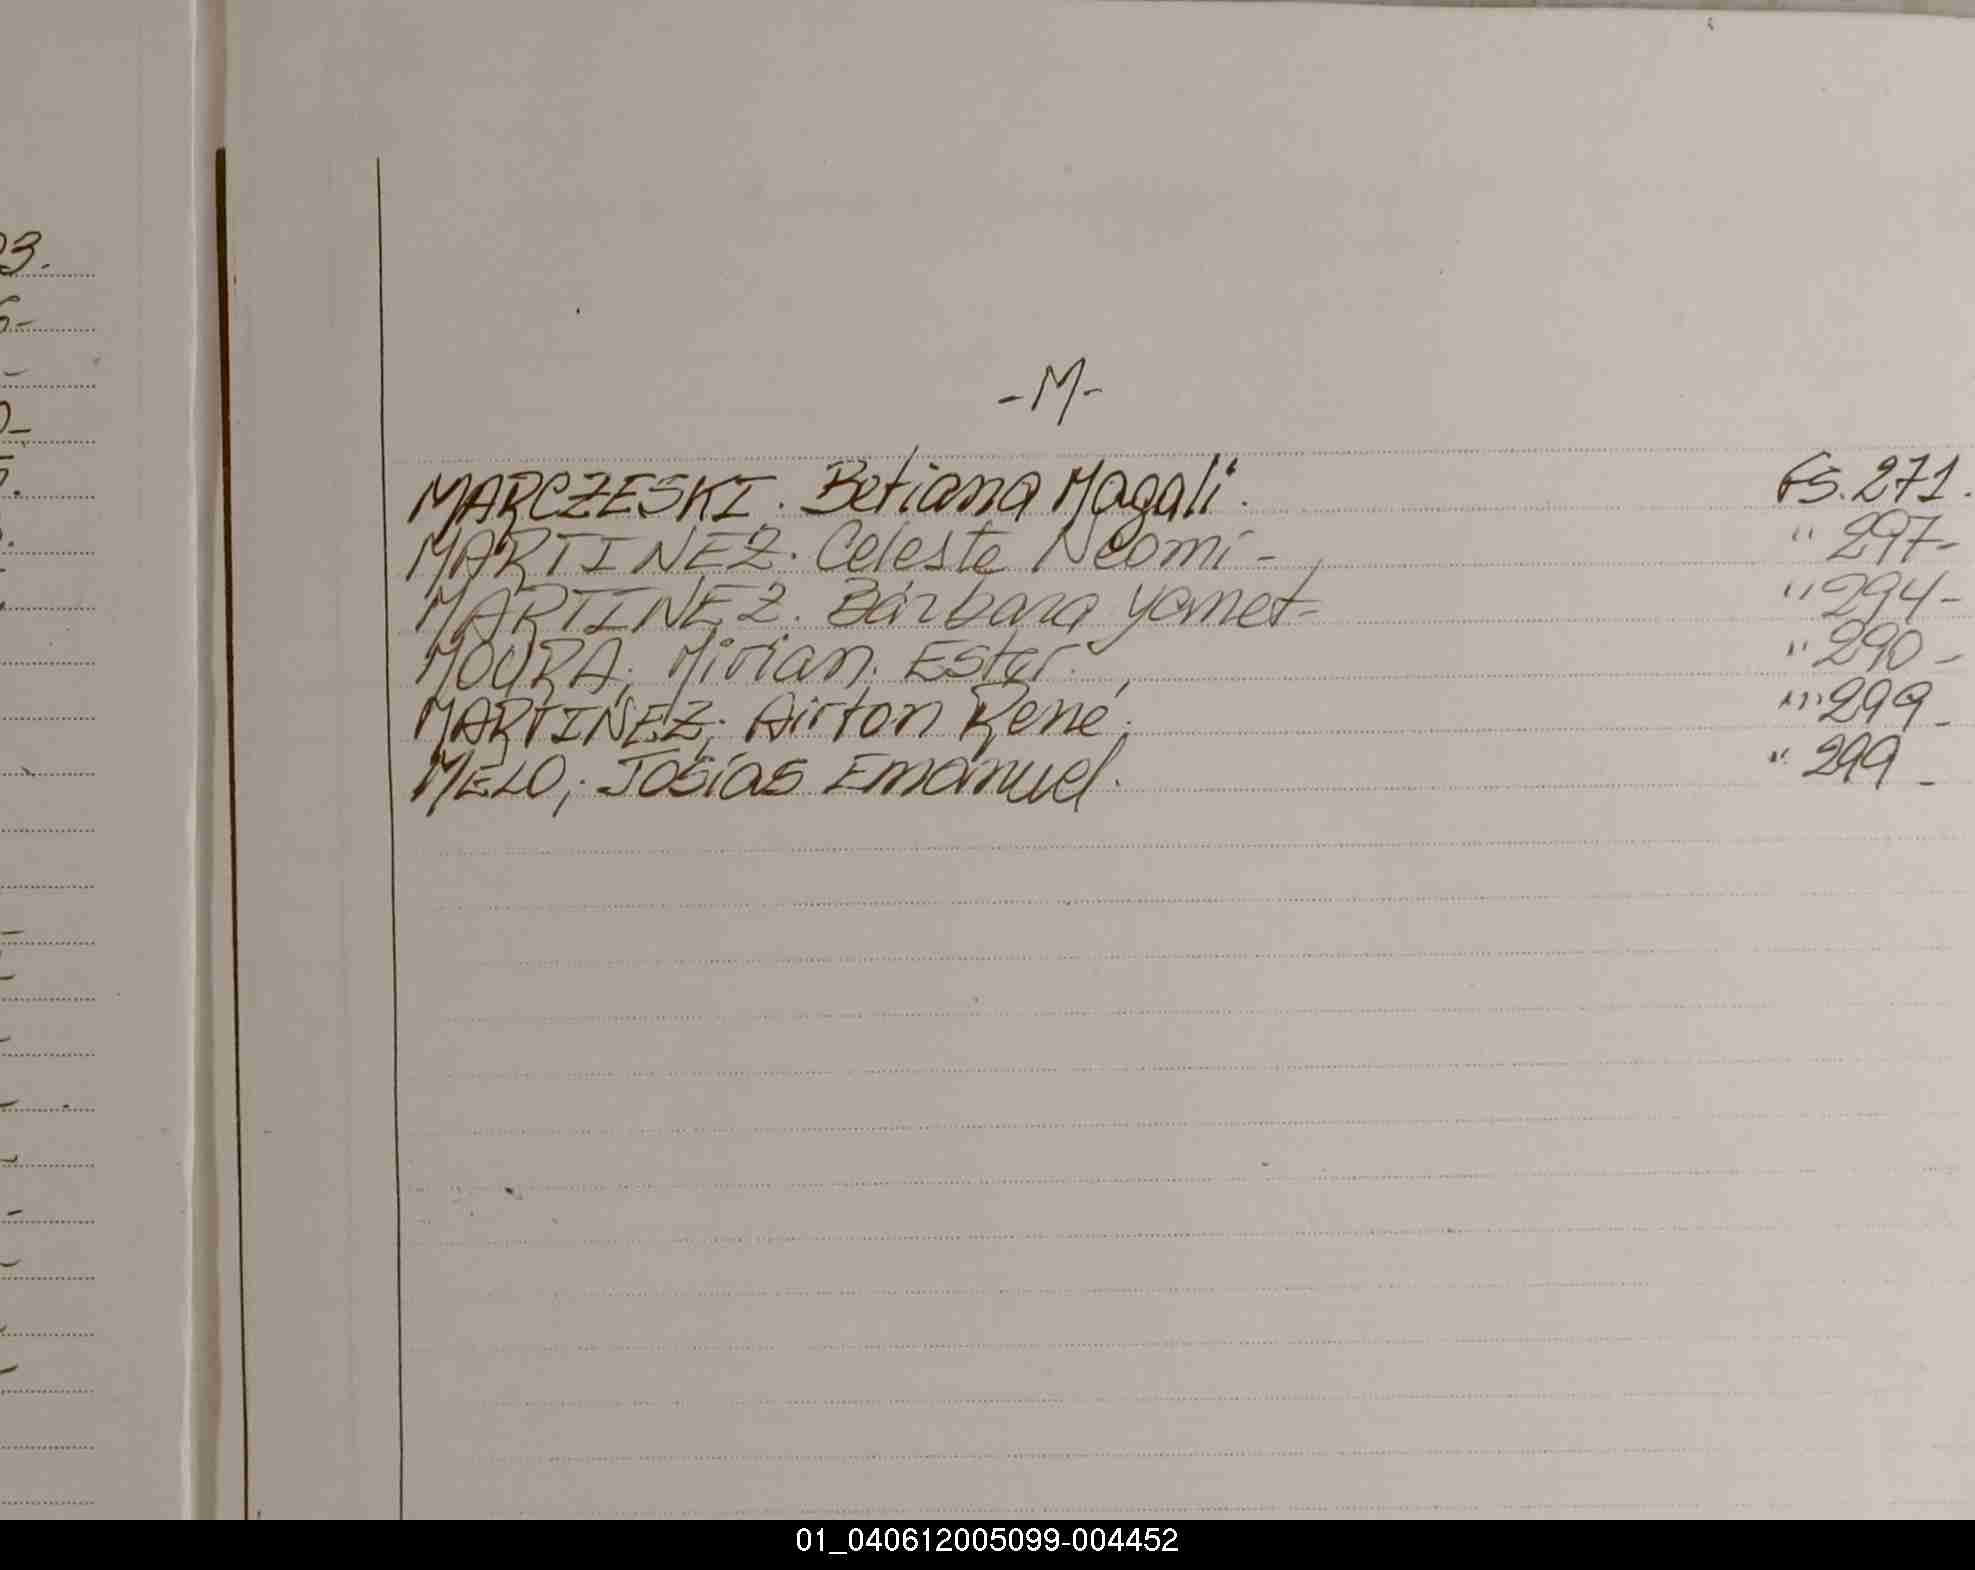 -M-
MARCZESKI. Betiana Magali. Fs. 271.
MARTINEZ. Celeste Neomi- " 297-
MARTINEZ. Bárbara Yamet- " 294-
MOURA; Mirian. Ester. " 290-
MARTINEZ; Airton René. " 299-
MELO; Josías Emanuel. " 299-
01_040612005099-004452